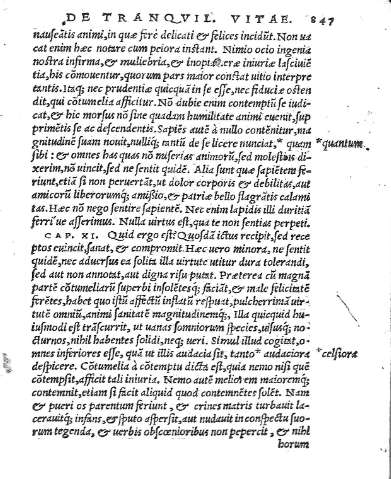 DE TRANQVIL. VITAE. 847
nauseātis animi, in quæ ferè delicati & felices incidūt. Non ua
cat enim hæc notare cum peiora instant. Nimio ocio ingenia
nostra infirma, & muliebria, & inopia ueræ iniuriæ lasciuiē
tia, his cōmouentur, quorum pars maior constat uitio interpre
tantis. Itaq; nec prudentiæ quicquā in se esse, nec fiduciæ osten
dit, qui cōtumelia afficitur. Nō dubie enim contemptū se iudi-
cat, & hic morsus nō sine quadam humilitate animi euenit, sup
primētis se ac descendentis. Sapiēs autē à nullo contēnitur, ma
gnitudinē suam nouit, nulliq; tantū de se licere nunciat, * quam *quantum
sibi: & omnes has quas nō miserias animorū, sed molestias di-
xerim, nō uincit, sed ne sentit quidē. Alia sunt quæ sapiētem fe-
riunt, etiā si non peruertāt, ut dolor corporis & debilitas, aut
amicorū liberorumq; amissio, & patriæ bello flagrātis calami
tas. Hæc nō nego sentire sapientē. Nec enim lapidis illi duritiā
ferri'ue asserimus. Nulla uirtus est, quæ te non sentias perpeti.
CAP. XI. Quid ergo est? Quosdā ictus recipit, sed rece
ptos euincit, sanat, & comprimit. Hæc uero minora, ne sentit
quidē, nec aduersus ea solita illa uirtute utitur dura tolerandi,
sed aut non annotat, aut digna risu putat. Præterea cū magnā
partē cōtumeliarū superbi insolētesq; faciāt, & male felicitatē
ferētes, habet quo istū affectū inflatū respuat, pulcherrimā uir-
tutē omniū, animi sanitatē magnitudinemq;. Illa quicquid hu-
iusmodi est trāscurrit, ut uanas somniorum species, uisusq; no-
cturnos, nihil habentes solidi, neq; ueri. Simul illud cogitat, o-
mnes inferiores esse, quā ut illis audacia sit, tanto * audaciora *celsiora
despicere. Cōtumelia à cōtemptu dicta est, quia nemo nisi quē
cōtempsit, afficit tali iniuria. Nemo autē meliorem maioremq;
contemnit, etiam si facit aliquid quod contemnētes solēt. Nam
& pueri os parentum feriunt, & crines matris turbauit la-
cerauitq; infans, & sputo aspersit, aut nudauit in conspectu suo-
rum tegenda, & uerbis obscœnioribus non pepercit, & nihil
horum